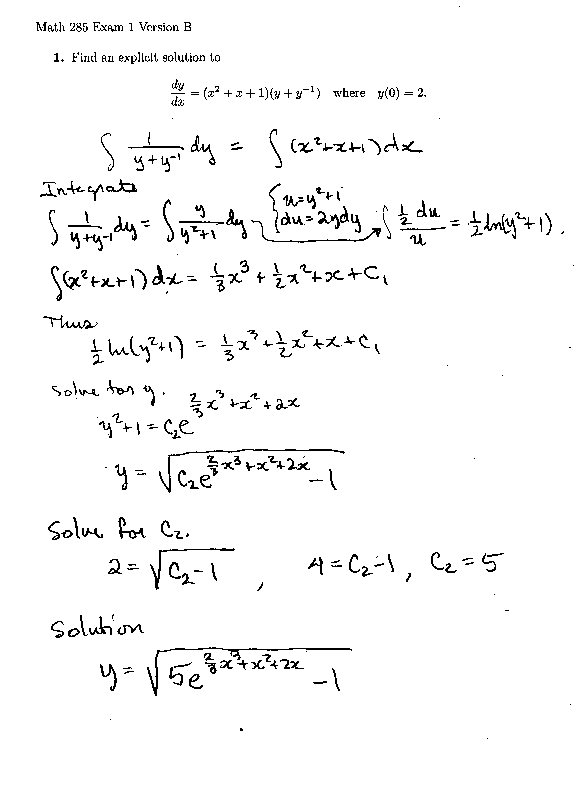 Math 285 Exam 1 Version B
1. Find an explicit solution to
dy/dx = (x² + x + 1)(y + y⁻¹) where y(0) = 2.
∫ 1/(y+y⁻¹) dy = ∫ (x²+x+1)dx
Integrate
∫ 1/(y+y⁻¹) dy = ∫ y/(y²+1) dy { u=y²+1 du=2ydy ∫ ½ du/u = ½ ln(y²+1).
∫(x²+x+1)dx = ⅓x³ + ½x² + x + C₁
Thus
½ ln(y²+1) = ⅓x³ + ½x² + x + C₁
Solve for y.
y²+1 = C₂e^(⅔x³+x²+2x)
y = √(C₂e^(⅔x³+x²+2x) − 1)
Solve for C₂.
2 = √(C₂−1) , 4 = C₂−1, C₂ = 5
Solution
y = √(5e^(⅔x³+x²+2x) − 1)